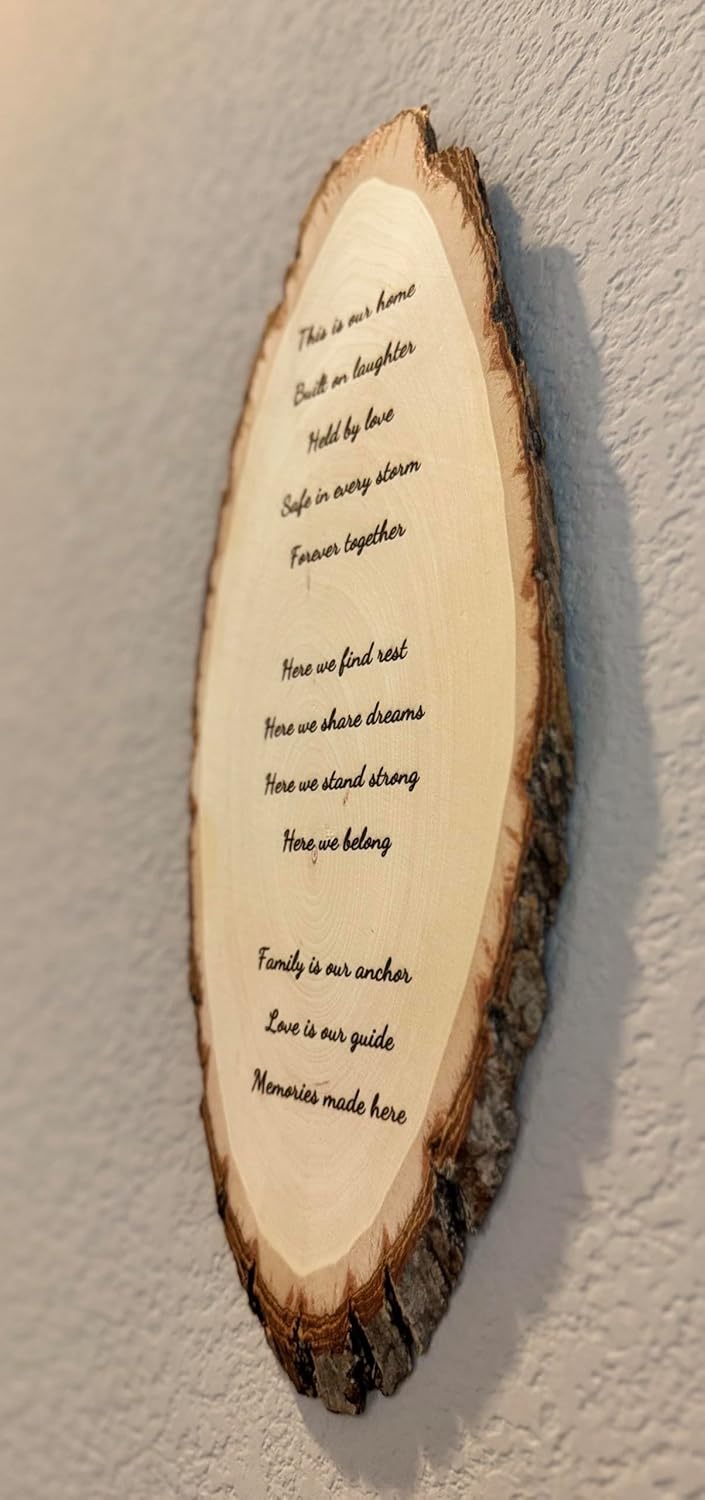 This is our home
Built on laughter
Held by love
Safe in every storm
Forever together
Here we find rest
Here we share dreams
Here we stand strong
Here we belong
Family is our anchor
Love is our guide
Memories made here